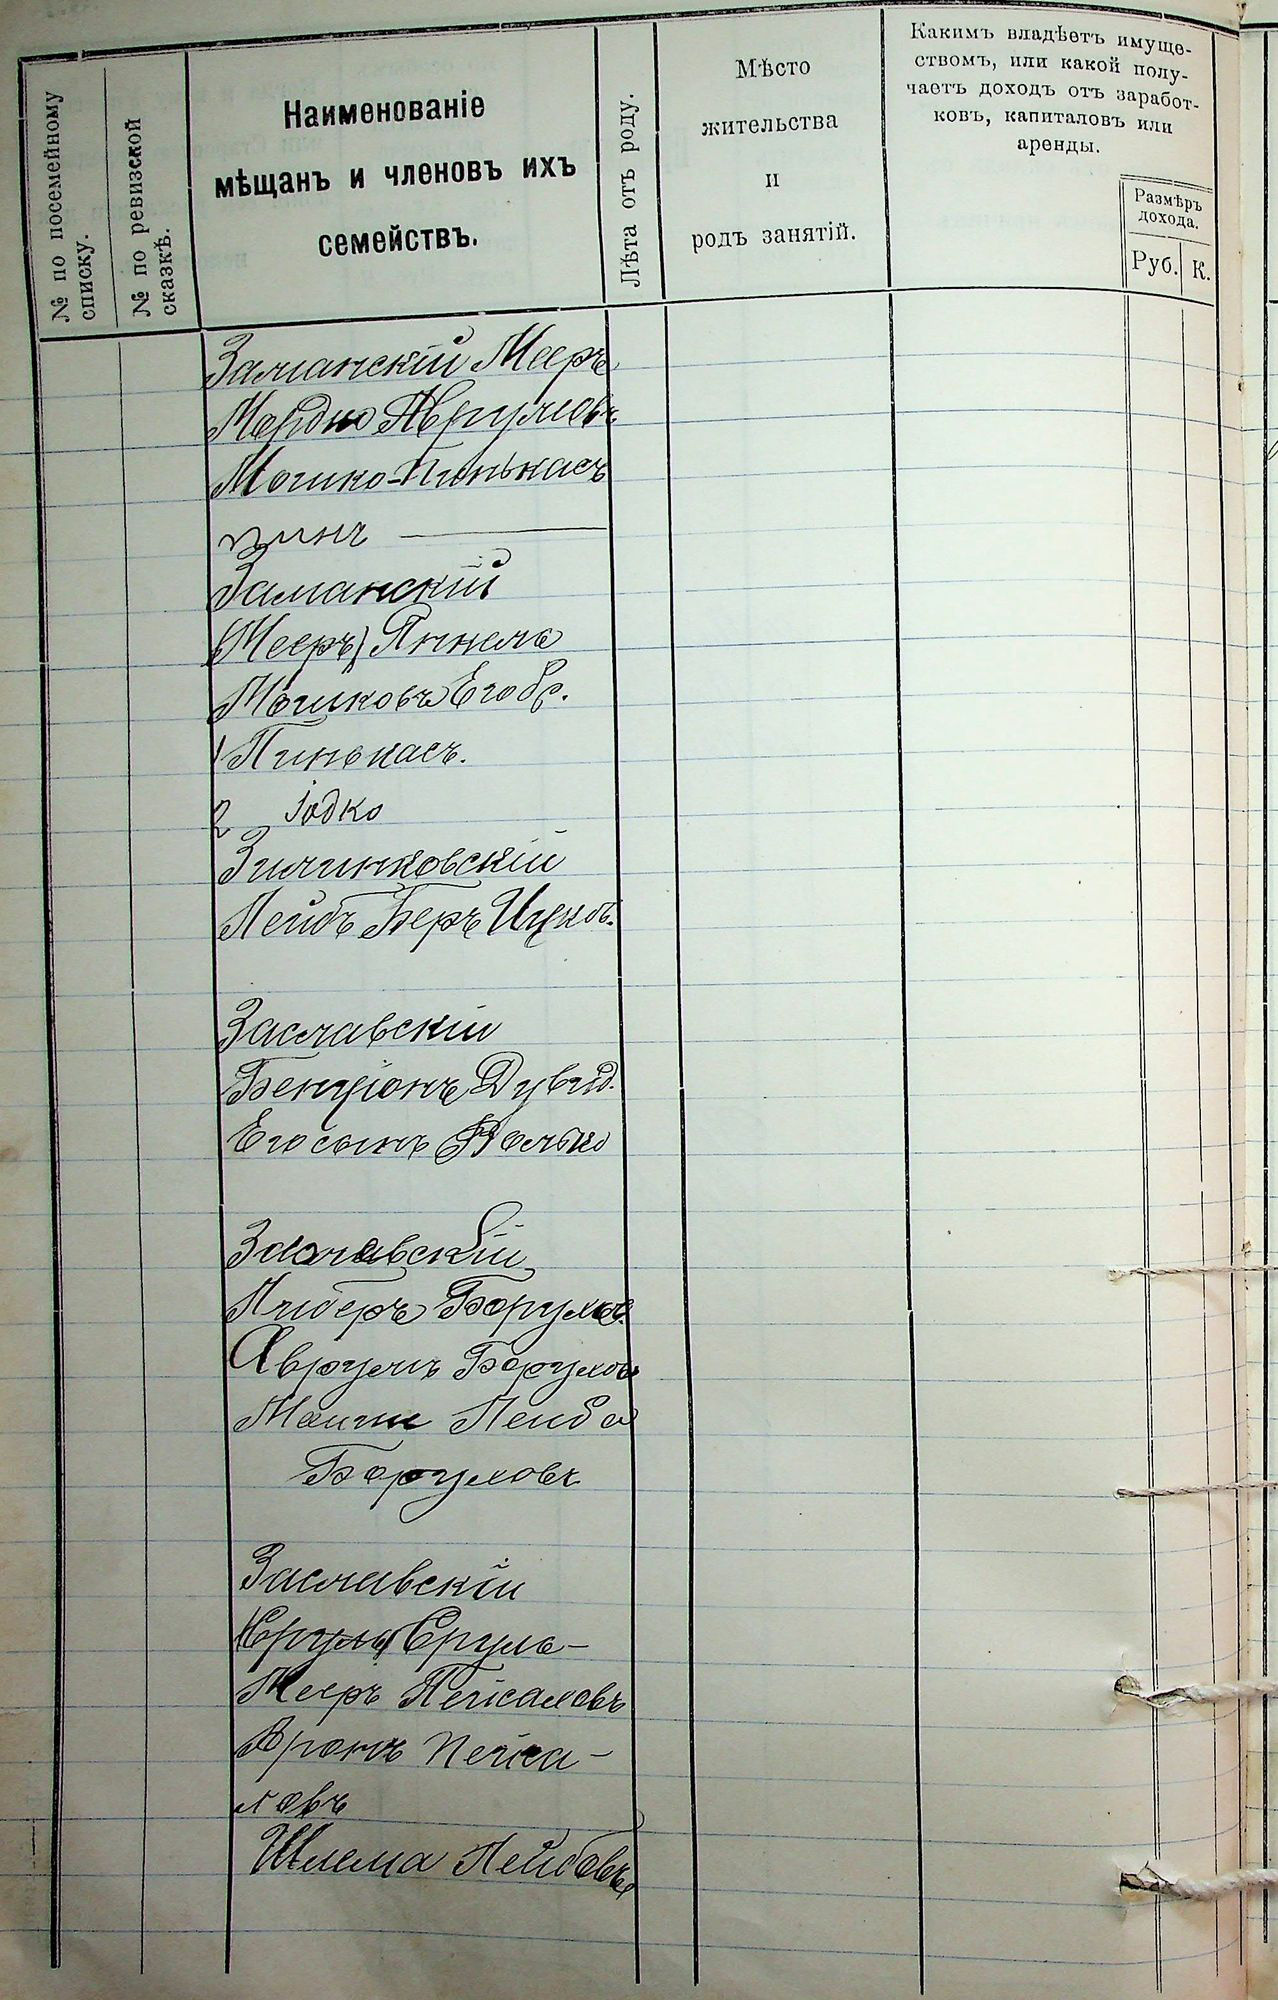 № по посемейному
списку.
№ по ревизской
сказкѣ.
Наименованіе
мѣщанъ и членовъ ихъ
семействъ.
Лѣта отъ роду.
Мѣсто
жительства
и
родъ занятій.
Какимъ владѣетъ имуще-
ствомъ, или какой полу-
чаетъ доходъ отъ заработ-
ковъ, капиталовъ или
аренды.
Размѣръ
дохода.
Руб. К.
Заманскій Мееръ
Мордко Аврумовъ
Мошко-Пинькасъ
Заманскій
(Мееръ) Янкель
Мошковъ Его бр.
1 Пинькасъ.
2 Іодко
Зилинковскій
Лейбъ Беръ Ицков.
Заславскій
Бенціонъ Дувид.
Его сынъ Волько
Заславскій
Либеръ Борухов.
Аврумъ Борухов.
Лейба
Боруховъ
Заславскій
(Сруль) Сруль-
Мееръ Пейсаховъ
Аронъ Пейса-
ховъ
Шлема Лейбовъ